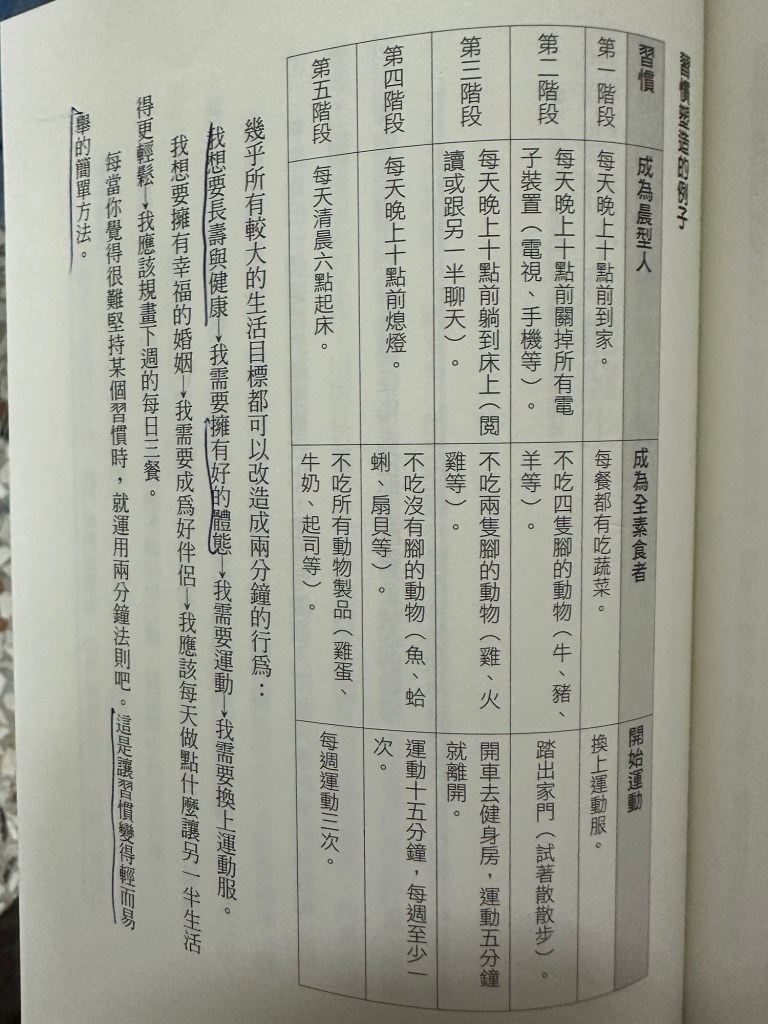 習慣塑造的例子
習慣
成為晨型人
成為全素食者
開始運動
第一階段
每天晚上十點前到家。
每餐都有吃蔬菜。
換上運動服。
第二階段
每天晚上十點前關掉所有電
子裝置（電視、手機等）。
不吃四隻腳的動物（牛、豬、
羊等）。
踏出家門（試著散散步）。
第三階段
每天晚上十點前躺到床上（閱
讀或跟另一半聊天）。
不吃兩隻腳的動物（雞、火
雞等）。
開車去健身房，運動五分鐘
就離開。
第四階段
每天晚上十點前熄燈。
不吃沒有腳的動物（魚、蛤
蜊、扇貝等）。
運動十五分鐘，每週至少一
次。
第五階段
每天清晨六點起床。
不吃所有動物製品（雞蛋、
牛奶、起司等）。
每週運動三次。
幾乎所有較大的生活目標都可以改造成兩分鐘的行為：
我想要長壽與健康→我需要擁有好的體態→我需要運動→我需要換上運動服。
我想要擁有幸福的婚姻→我需要成為好伴侶→我應該每天做點什麼讓另一半生活
得更輕鬆→我應該規畫下週的每日三餐。
每當你覺得很難堅持某個習慣時，就運用兩分鐘法則吧。這是讓習慣變得輕而易
舉的簡單方法。